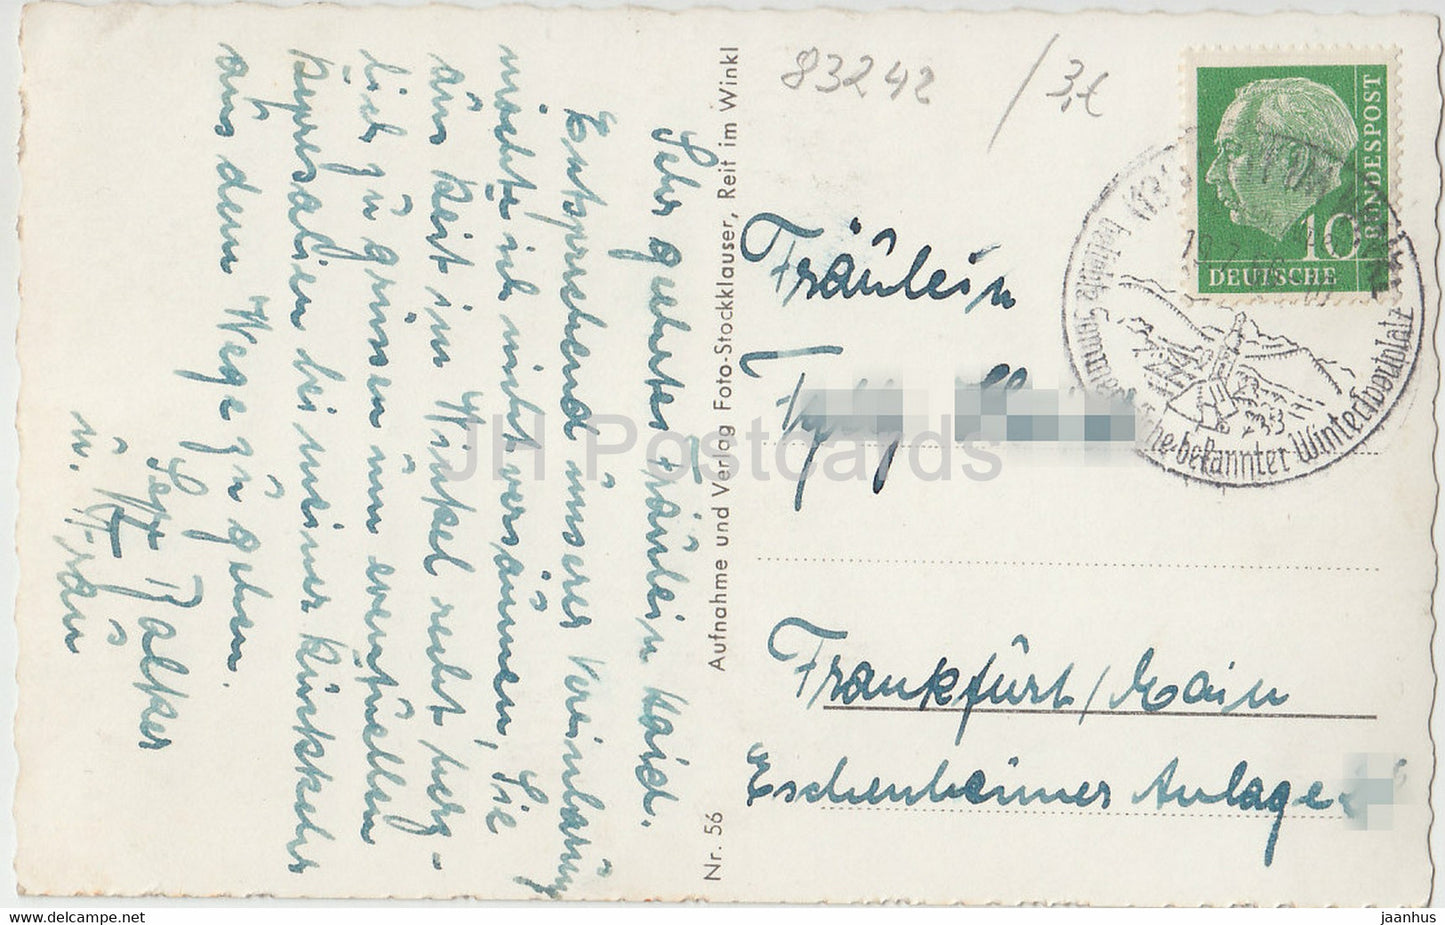 Sehr geehrtes Fräulein Haid.
Entsprechend unserer Vereinbarung
möchte ich nicht versäumen, Sie
aus Reit im Winkel recht herz-
lich zu grüssen um eventuellen
Repressalien bei meiner Rückkehr
aus dem Wege zu gehen.
Sepp
u. Frau
Aufnahme und Verlag Foto-Stockklauser, Reit im Winkl
Nr. 56
83242 /3,€
DEUTSCHE
BUNDESPOST
10
beliebte
bekannter Wintersportplatz
Fräulein
Frankfurt/Main
Eschenheimer Anlage
JH Postcards
www.delcampe.net
jaanhus